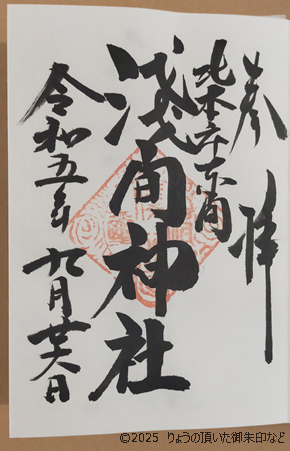 奉拝
北本市東間
淺間神社
令和五年九月廿六日
©2025 りょうの頂いた御朱印など